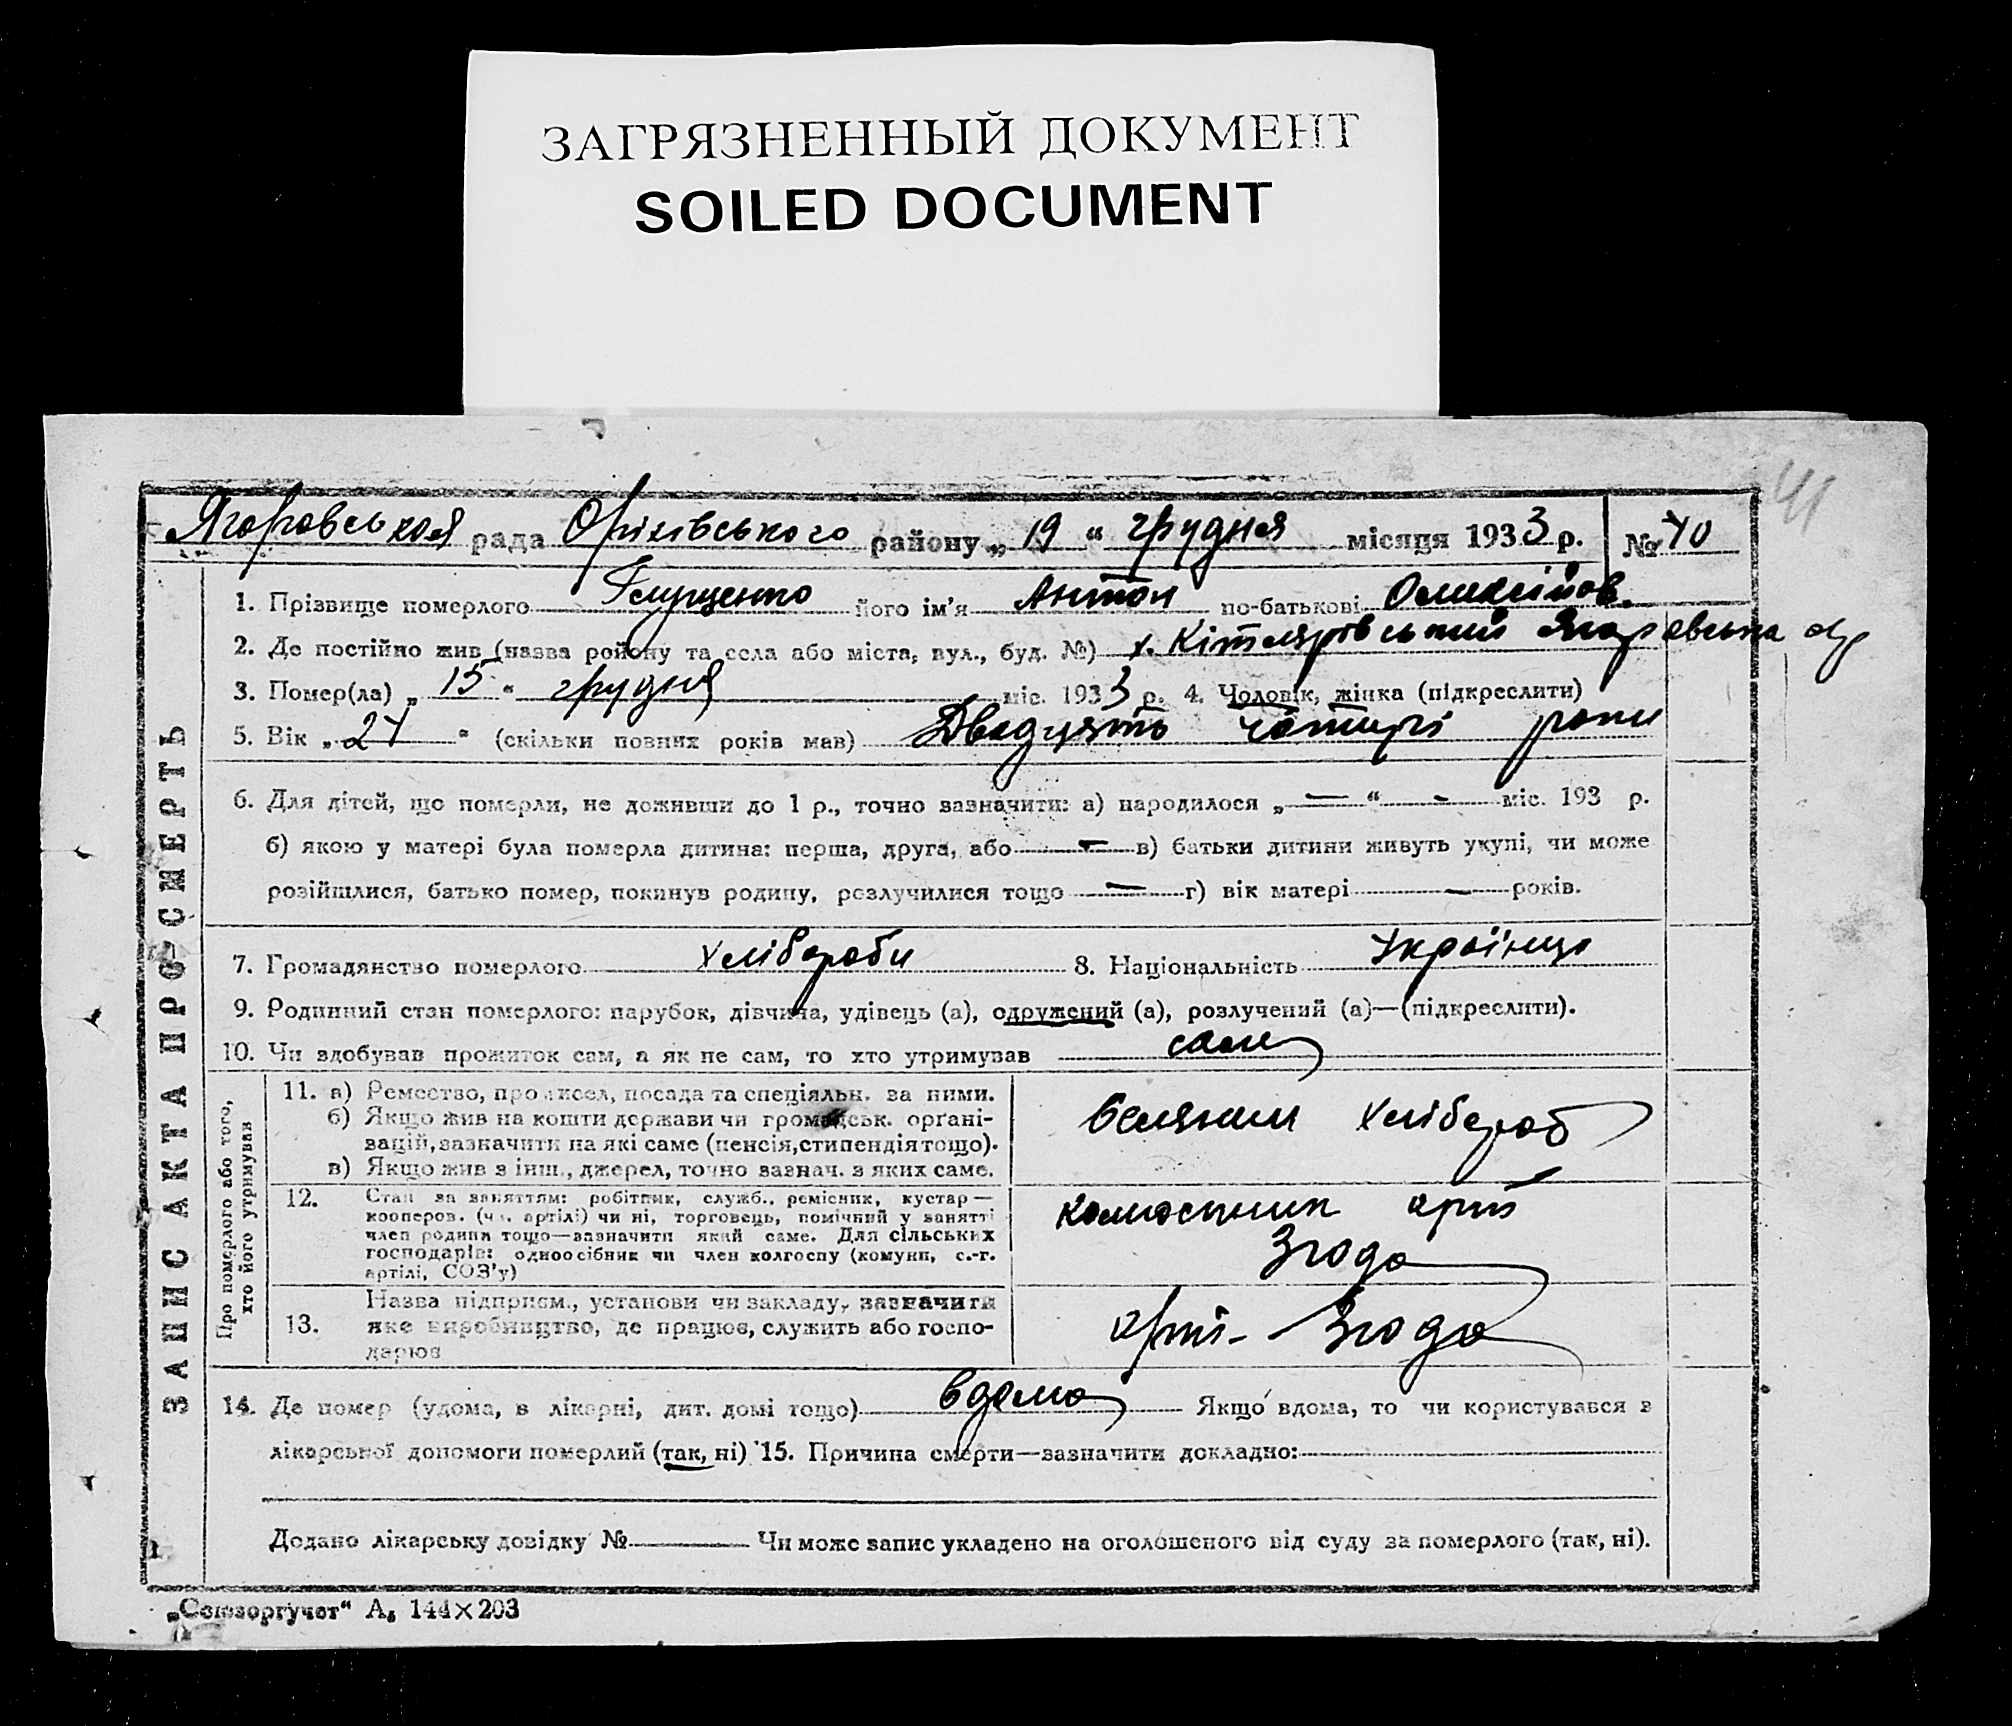 ЗАГРЯЗНЕННЫЙ ДОКУМЕНТ
SOILED DOCUMENT
41
Ягоровськоя рада Оріхівського району „ 19 “ грудня місяця 1933 р. № 40
ЗАПИС АКТА ПРО СМЕРТЬ
1. Прізвище померлого Глущенко його ім'я Антон по-батькові Олексійов.
2. Де постійно жив (назва району та села або міста, вул., буд. №) х. Кітлярівський
3. Помер(ла) „ 15 “ грудня міс. 1933 р. 4. Чоловік, жінка (підкреслити)
5. Вік „ 24 “ (скільки повних років мав) Двадцять чотирі роки
6. Для дітей, що померли, не доживши до 1 р., точно зазначити: а) народилося „ — “ - міс. 193 р.
б) якою у матері була померла дитина: перша, друга, або — в) батьки дитини живуть укупі, чи може
розійшлися, батько помер, покинув родину, розлучилися тощо — г) вік матері — років.
7. Громадянство померлого Хлібороби 8. Національність Українці
9. Родинний стан померлого: парубок, дівчина, удівець (а), одружений (а), розлучений (а)—(підкреслити).
10. Чи здобував прожиток сам, а як не сам, то хто утримував сам
Про померлого або того,
хто його утримував
11. а) Ремество, промисел, посада та спеціяльн. за ними.
б) Якщо жив на кошти держави чи громадськ. орґані-
зацій, зазначити на які саме (пенсія, стипендія тощо).
в) Якщо жив з інш., джерел, точно зазнач. з яких саме.
Хлібороб
12. Стан за заняттям: робітник, служб., ремісник, кустар—
кооперов. (чл. артілі) чи ні, торговець, помічний у занятті
член родини тощо—зазначити який саме. Для сільських
господарів: одноосібник чи член колгоспу (комуни, с.-г.
артілі, СОЗ'у)
арті
Згода
13. Назва підприєм., установи чи закладу, зазначити
яке виробництво, де працює, служить або госпо-
дарює
арті- Згода
14. Де помер (удома, в лікарні, дит. домі тощо) вдома Якщо вдома, то чи користувався з
лікарської допомоги померлий (так, ні) 15. Причина смерти—зазначити докладно:
Додано лікарську довідку № — Чи може запис укладено на оголошеного від суду за померлого (так, ні).
„Союзоргучет“ А₆ 144×203